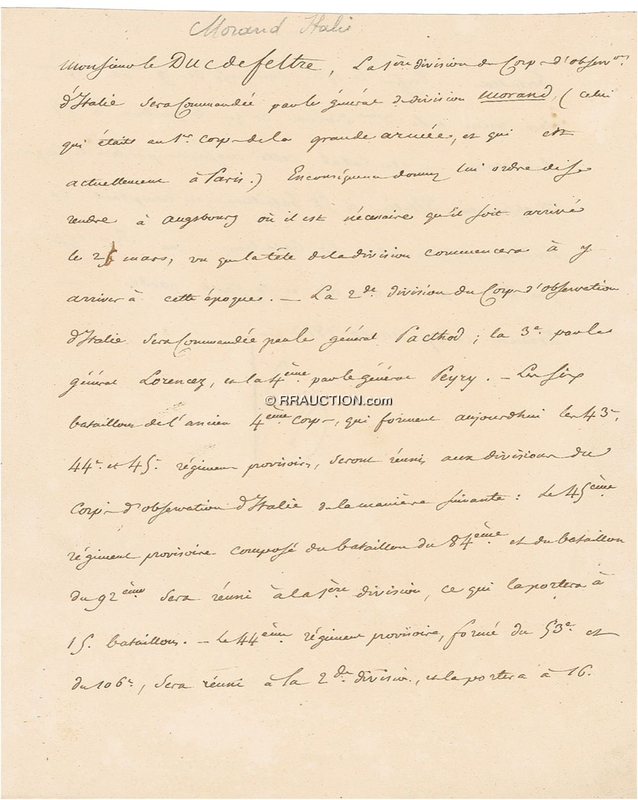 Morand Italie
Monsieur le Duc de feltre, La 1ère division du Corps d'observon
d'Italie sera Commandée par le général de division Morand, (celui
qui étaits au 1er corps de la grande armée, et qui est
actuellement à Paris.) En conséquence donnez lui ordre de se
rendre à augsbourg où il est nécessaire qu'il soit arrivé
le 26 mars, vu que la tête de la division commencera à y
arriver à cette époque. — La 2de division du Corps d'observation
d'Italie sera Commandée par le général Pacthod; la 3e par le
général Lorencez, et la 4ème par le général Peyry. — Les six
© RRAUCTION.com
bataillons de l'ancien 4ème corps, qui forment aujourdhui les 43e,
44e et 45e régimens provisoires, seront réunis aux divisions du
Corps d'observation d'Italie de la manière suivante: Le 45ème
régiment provisoire composé du bataillon du 84ème et du bataillon
du 92ème sera réuni à la 1ère division, ce qui la portera à
15. bataillons. — Le 44ème régiment provisoire, formé du 53e et
du 106e, sera réuni à la 2de division, et la portera à 16.